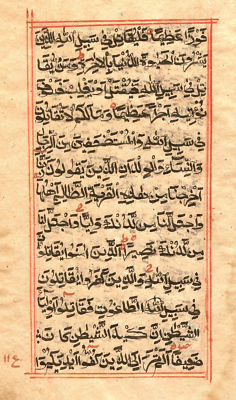 فوزا عظيما فليقاتل في سبيل الله الذين
يشرون الحيوة الدنيا بالاخرة ومن يقا
تل في سبيل الله فيقتل او يغلب فسوف
نؤتيه اجرا عظيما وما لكم لا تقاتلون
في سبيل الله والمستضعفين من الرجال
والنساء والولدان الذين يقولون ربنا
اخرجنا من هذه القرية الظالم اهلها
واجعل لنا من لدنك وليا واجعل لنا
من لدنك نصيرا الذين امنوا يقاتلون
في سبيل الله والذين كفروا يقاتلون
في سبيل الطاغوت فقاتلوا اولياء
الشيطان ان كيد الشيطان كان
ضعيفا الم تر الى الذين كفوا ايديكم